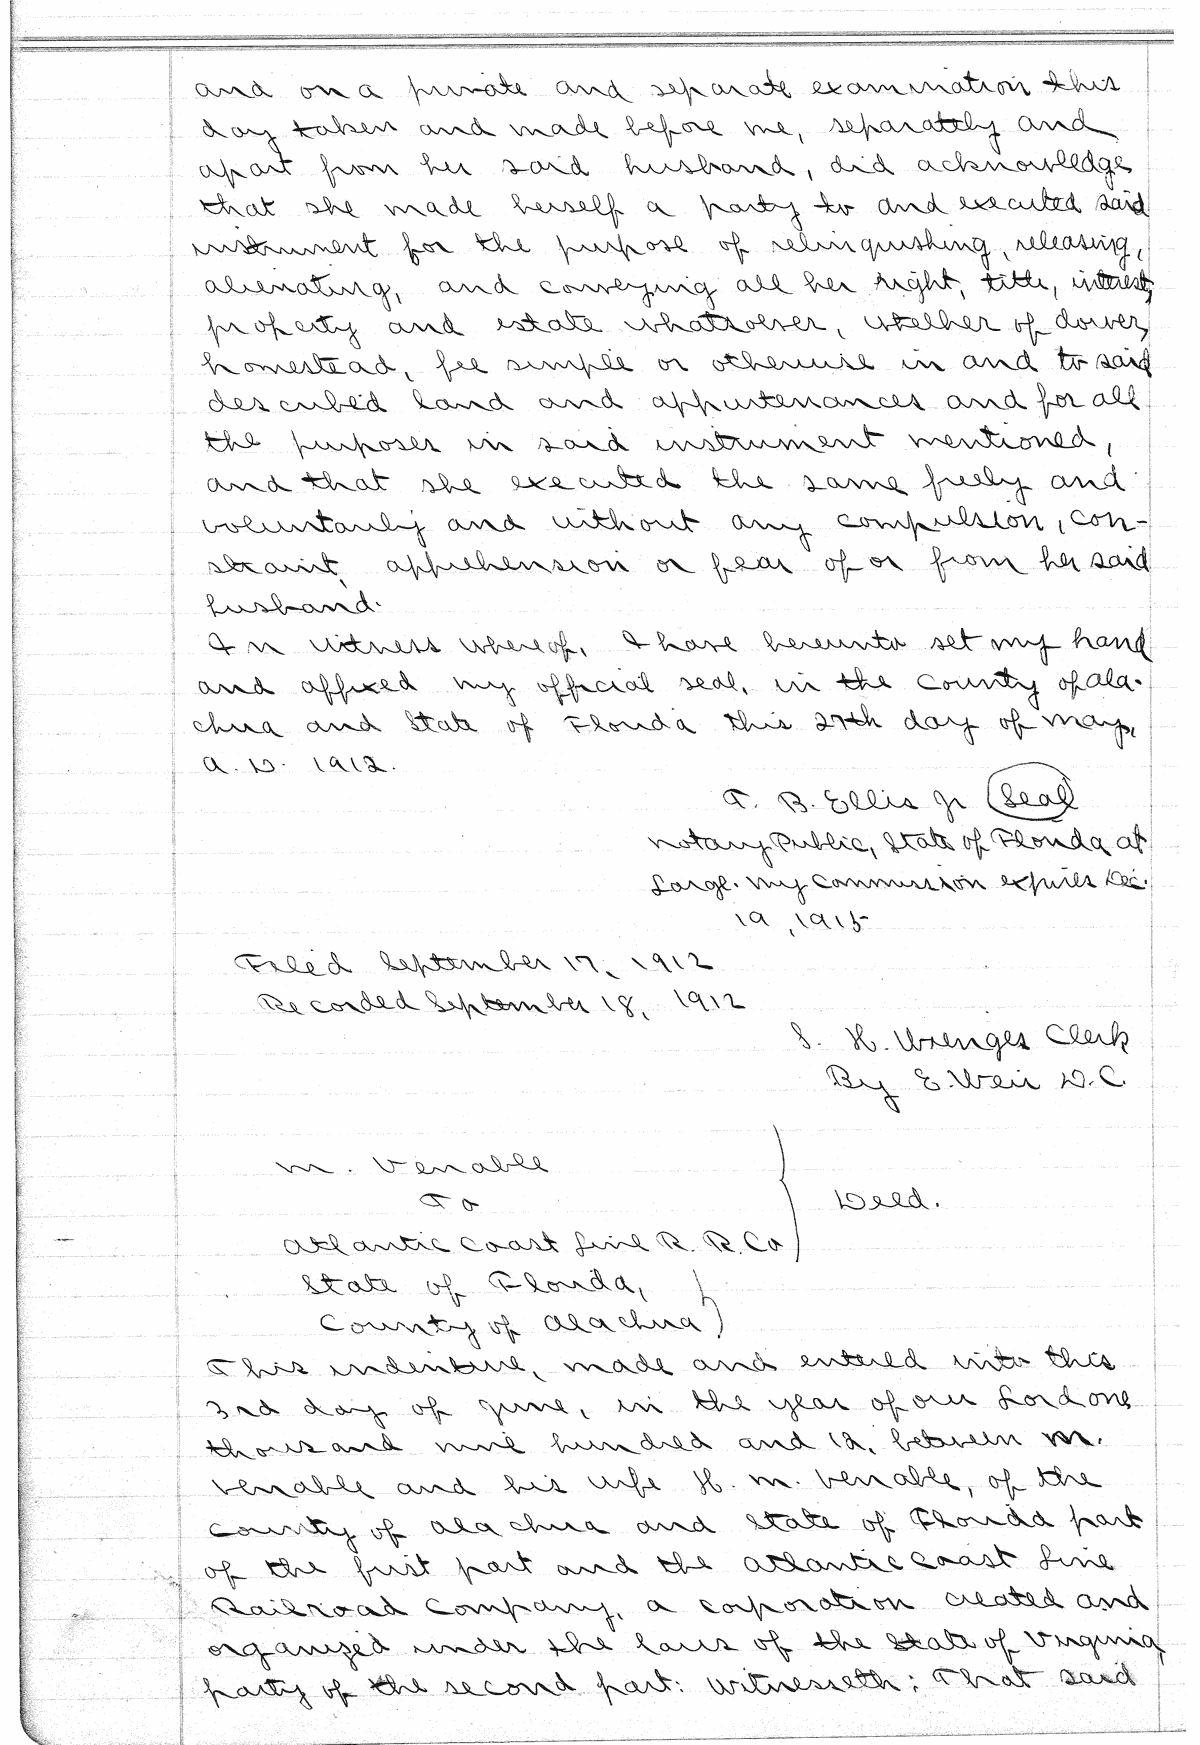 and on a private and separate examination this
day taken and made before me, separately and
apart from her said husband, did acknowledge
that she made herself a party to and executed said
instrument for the purpose of relinquishing, releasing,
alienating, and conveying all her right, title, interest,
property and estate whatsoever, whether of dower,
homestead, fee simple or otherwise in and to said
described land and appurtenances and for all
the purposes in said instrument mentioned,
and that she executed the same freely and
voluntarily and without any compulsion, con-
straint, apprehension or fear of or from her said
husband.
In witness whereof, I have hereunto set my hand
and affixed my official seal, in the County of Ala-
chua and State of Florida this 27th day of May,
A. D. 1912.
T. B. Ellis Jr (Seal)
Notary Public, State of Florida at
Large. My Commission expires Dec.
19, 1915
Filed September 17, 1912
Recorded September 18, 1912
S. H. Wienges Clerk
By E. Weir D.C.
M. Venable
To
Atlantic Coast Line R. R. Co
Deed.
State of Florida,
County of Alachua
This indenture, made and entered into this
3rd day of June, in the year of our Lord one
thousand nine hundred and 12, between M.
Venable and his wife H. M. Venable, of the
County of Alachua and State of Florida part
of the first part and the Atlantic Coast Line
Railroad Company, a corporation created and
organized under the laws of the State of Virginia,
party of the second part: Witnesseth; That said